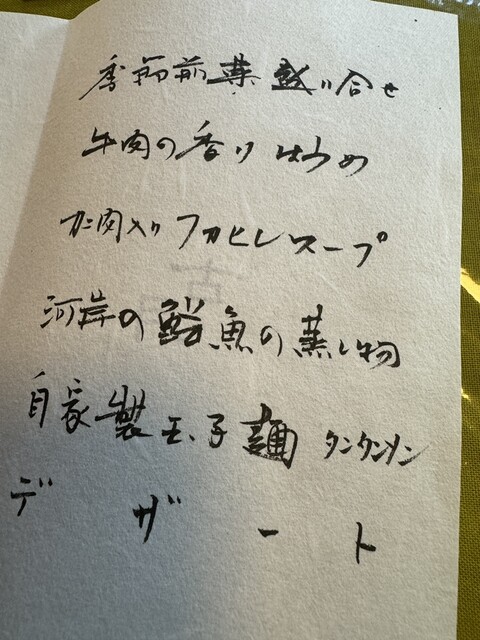 季節前菜盛り合せ
牛肉の香り
カニ肉入りフカヒレスープ
河岸の鮮魚の蒸し物
自家製玉子麺 タンタンメン
デザート